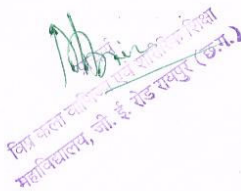 विप्र कला वाणिज्य एवं शारीरिक शिक्षा
महाविद्यालय, जी. ई. रोड रायपुर (छ.ग.)